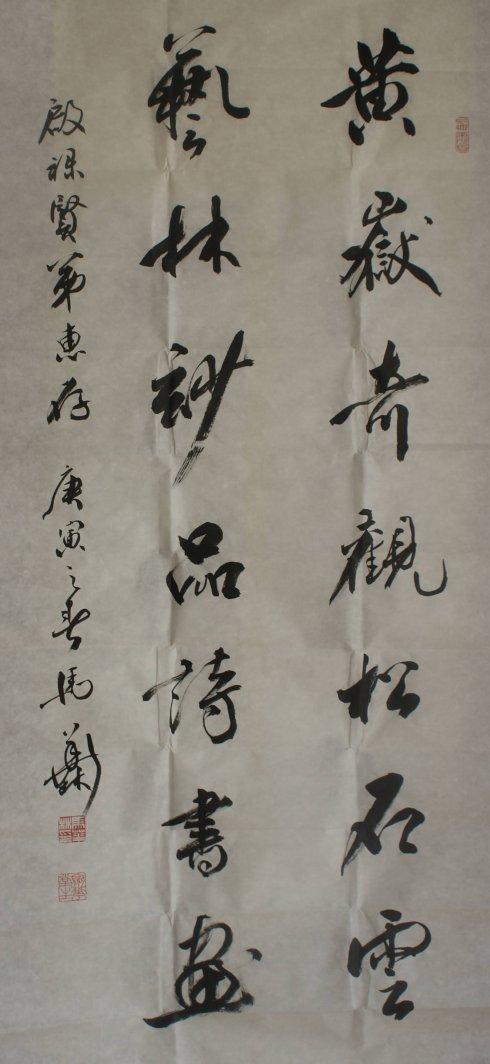 黄嶽奇觀松石雲
藝林妙品詩書畫
啟祿賢弟惠存 庚寅之春馬